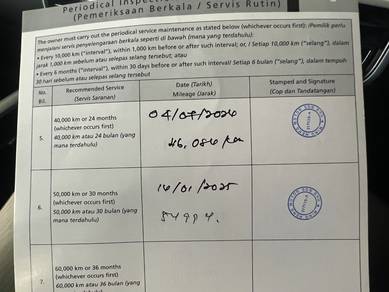 Periodical Inspec
(Pemeriksaan Berkala / Servis Rutin)
The owner must carry out the periodical service maintenance as stated below (whichever occurs first): (Pemilik perlu
menjalani servis penyelenggaraan berkala seperti di bawah (mana yang terdahulu):
• Every 10,000 km ("interval"), within 1,000 km before or after such interval; or, / Setiap 10,000 km ("selang"), dalam
jarak 1,000 km sebelum atau selepas selang tersebut; atau
• Every 6 months ("interval"), within 30 days before or after such interval/ Setiap 6 bulan ("selang"), dalam tempoh
30 hari sebelum atau selepas selang tersebut
No.
Bil.
Recommended Service
(Servis Saranan)
Date (Tarikh)
Mileage (Jarak)
Stamped and Signature
(Cop dan Tandatangan)
5.
40,000 km or 24 months
(whichever occurs first)
40,000 km atau 24 bulan (yang
mana terdahulu)
46,086 km
6.
50,000 km or 30 months
(whichever occurs first)
50,000 km atau 30 bulan (yang
mana terdahulu)
16/01/2025
7.
60,000 km or 36 months
(whichever occurs first)
60,000 km atau 36 bulan (yang